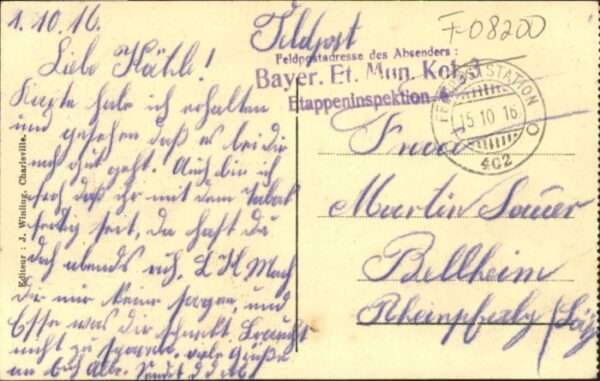 1.10.16.
Liebe Käthle!
Karte habe ich erhalten
und gesehen daß es bei dir
noch gut geht. Auch bin ich
froh daß ihr mit dem Tabak
fertig seit, da hast du
doch abends
Mach
dir nur keine sorgen, und
Esse was dir schmekt. Brauchst
nicht zu sparen. viele Grüße
an Euch Alle.
Editeur : J. Winling, Charleville.
Feldpost
F-08200
Feldpostadresse des Absenders :
Bayer. Et. Mun. Kol. 3
Etappeninspektion
STATION
15 10 16
402
Frau
Martin Sauer
Bellheim
Rheinpfalz